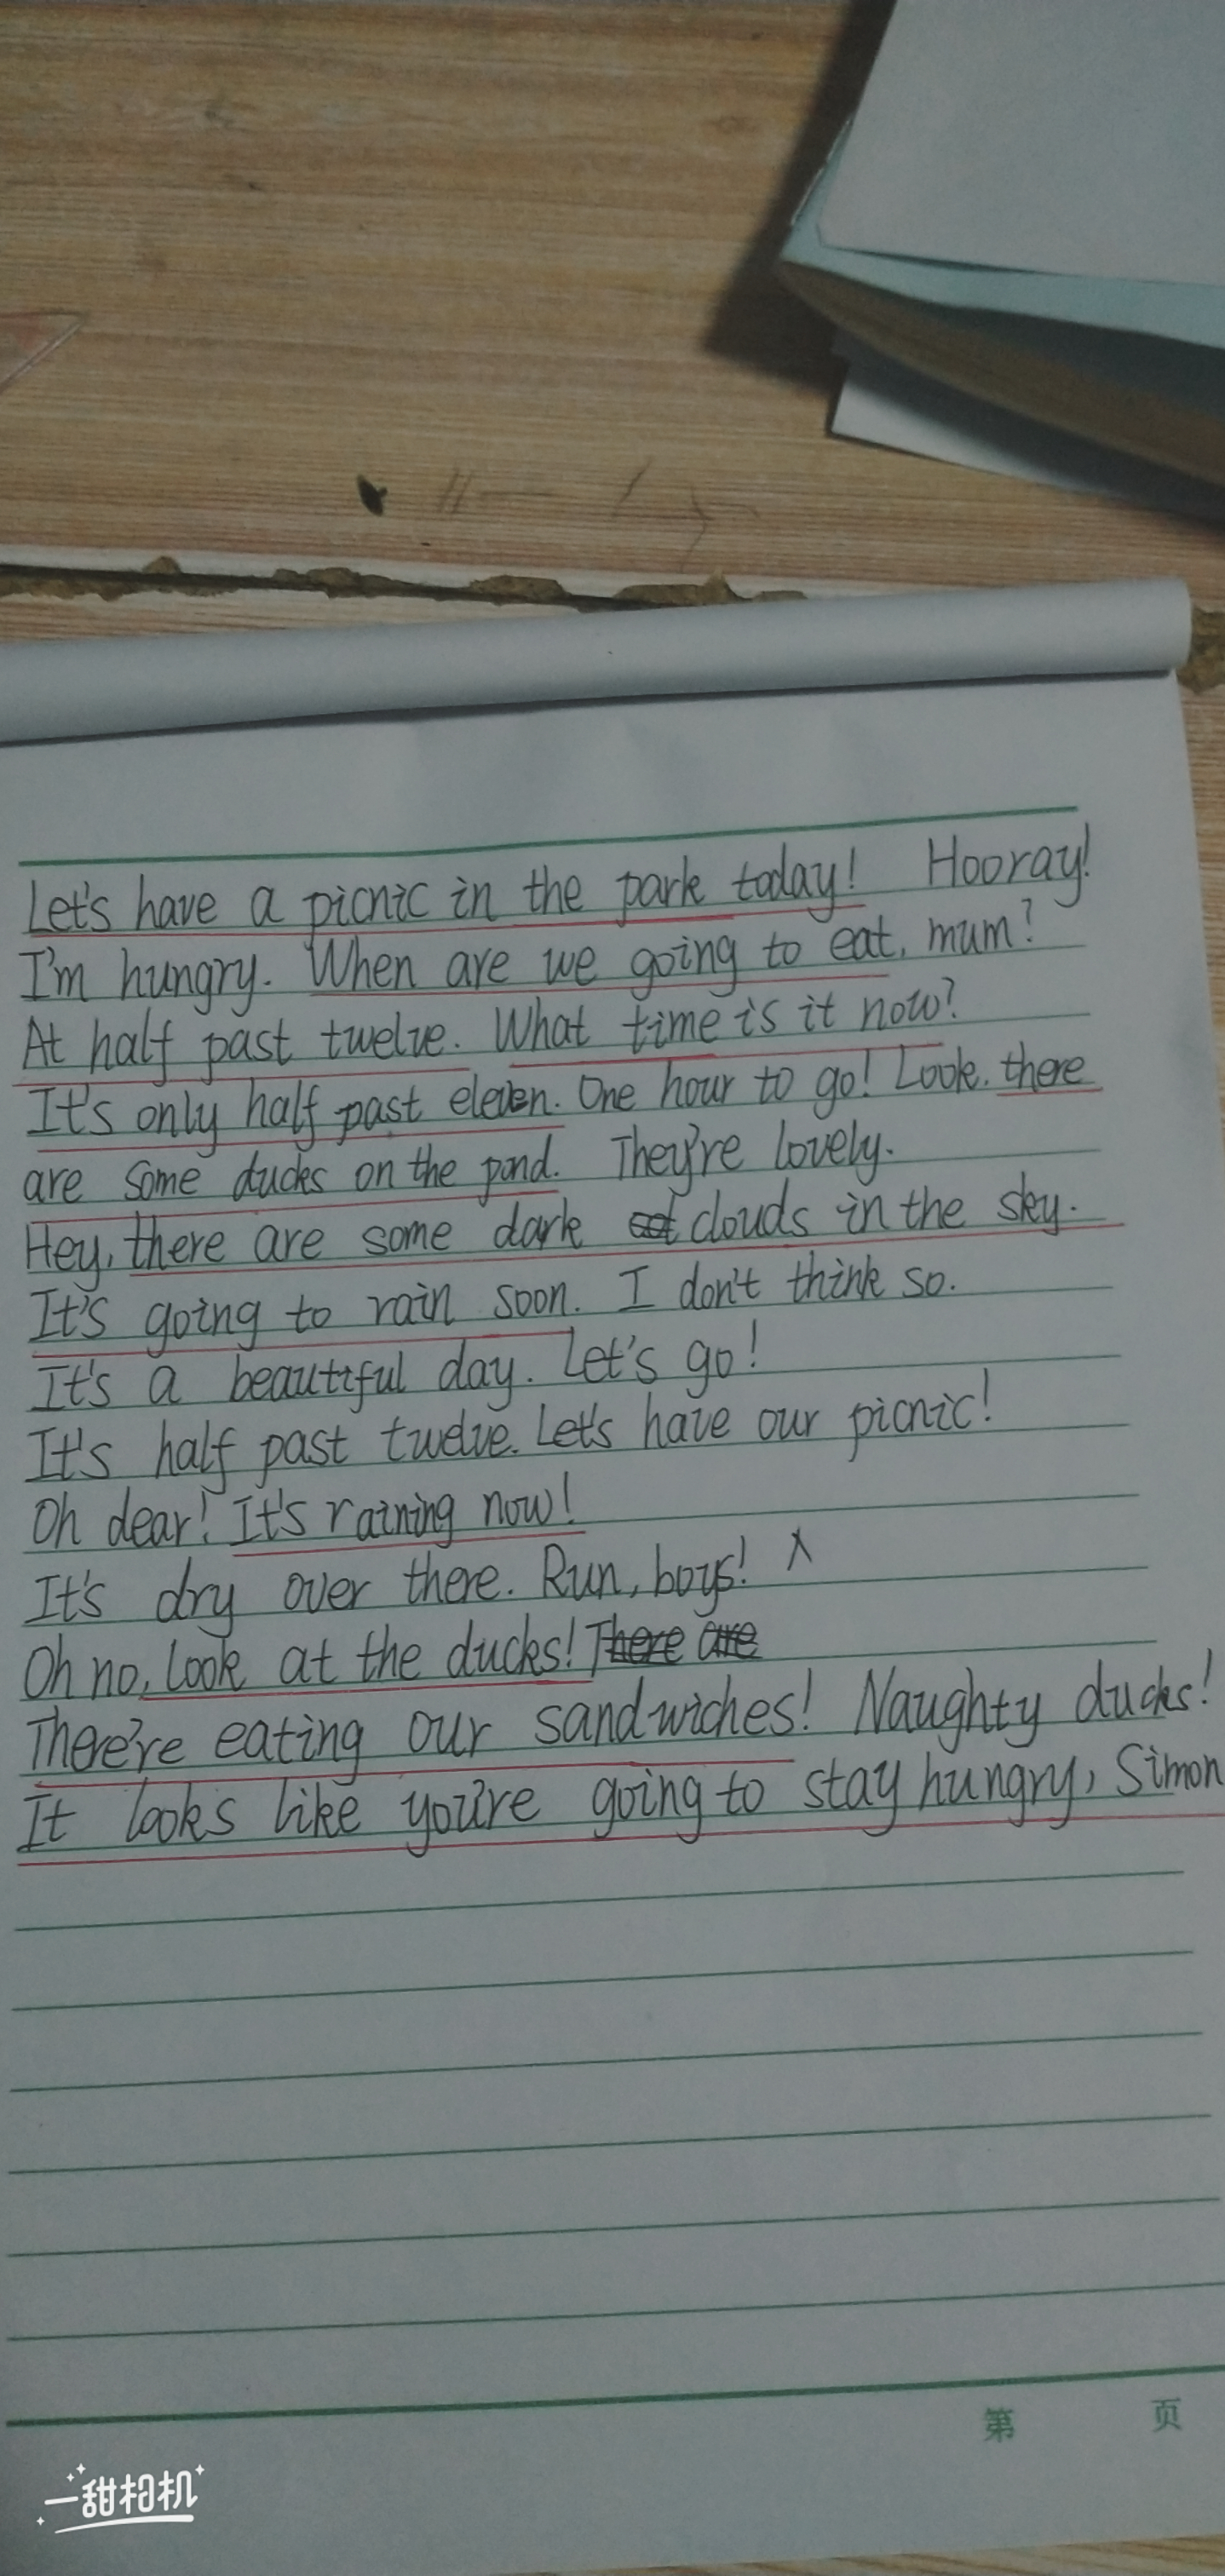 Let's have a picnic in the park today! Hooray!
I'm hungry. When are we going to eat, mum?
At half past twelve. What time is it now?
It's only half past eleven. One hour to go! Look, there
are some ducks on the pond. They're lovely.
Hey, there are some dark clouds in the sky.
It's going to rain soon. I don't think so.
It's a beautiful day. Let's go!
It's half past twelve. Let's have our picnic!
Oh dear! It's raining now!
It's dry over there. Run, boys!
Oh no, look at the ducks! There are
There're eating our sandwiches! Naughty ducks!
It looks like you're going to stay hungry, Simon
第 页
一甜相机